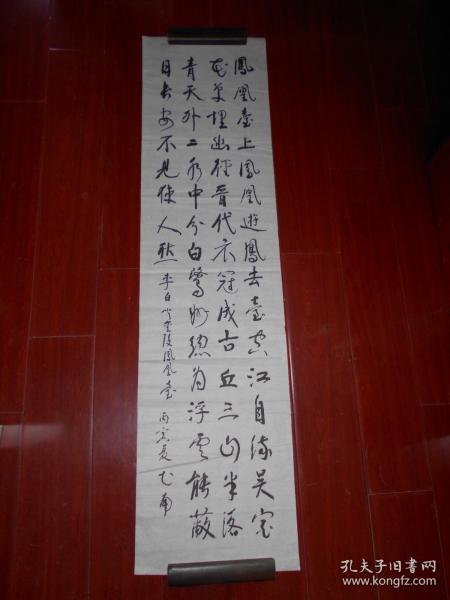 鳳凰臺上鳳凰遊鳳去臺空江自流吳宮
花草埋幽徑晉代衣冠成古丘三山半落
青天外二水中分白鷺洲總為浮雲能蔽
日長安不見使人愁 李白登金陵鳳凰臺 丙寅夏
孔夫子旧书网
www.kongfz.com